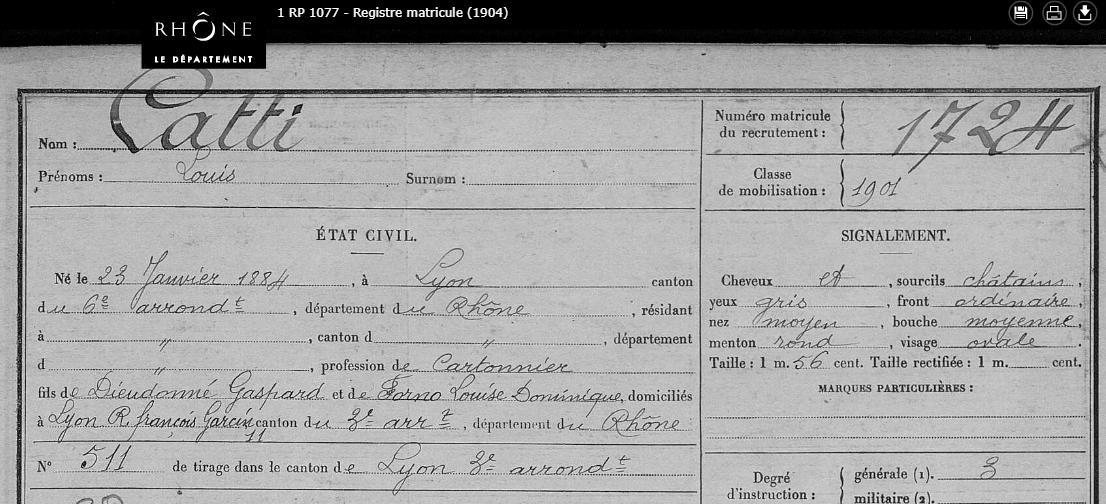 1 RP 1077 - Registre matricule (1904)
RHÔNE
LE DÉPARTEMENT
Nom : Catti
Prénoms : Louis Surnom :
Numéro matricule
du recrutement : 1724
Classe
de mobilisation : 1901
ÉTAT CIVIL.
Né le 23 Janvier 1884, à Lyon canton
du 6e arrondt, département du Rhône, résidant
à " , canton d " , département
d " , profession de Cartonnier
fils de Dieudonné Gaspard et de Forno Louise Dominique, domiciliés
à Lyon R. françois Garcin 11 canton du 3e arrt, département du Rhône
N° 511 de tirage dans le canton de Lyon 3e arrondt
SIGNALEMENT.
Cheveux et , sourcils châtains,
yeux gris , front ordinaire,
nez moyen , bouche moyenne,
menton rond , visage ovale.
Taille : 1 m. 56 cent. Taille rectifiée : 1 m. cent.
MARQUES PARTICULIÈRES :
Degré
d'instruction :
générale (1). 3
militaire (2).